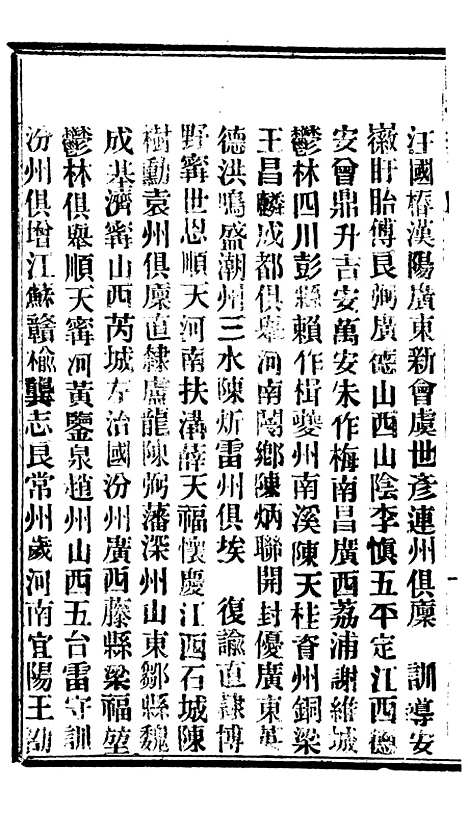 汪國樁漢陽廣東新會虞世彥連州俱廩　訓導安
徽盱眙傅良弼廣德山西山陰李慎五平定江西德
安曾鼎升吉安萬安朱作梅南昌廣西荔浦謝維城
鬱林四川彭縣賴作楫夔州南溪陳天桂資州銅梁
王昌麟成都俱舉河南閿鄉陳炳聯開封優廣東英
德洪鳴盛潮州三水陳炘雷州俱埃　復諭直隸博
野甯世恩順天河南扶溝薛天福懷慶江西石城陳
樹勳袁州俱廩直隸盧龍陳弼藩深州山東鄒縣魏
成基濟甯山西芮城左治國汾州廣西藤縣梁福堃
鬱林俱舉順天甯河黃鑒泉趙州山西五台雷守訓
汾州俱增江蘇贛榆龔志良常州歲河南宜陽王勛